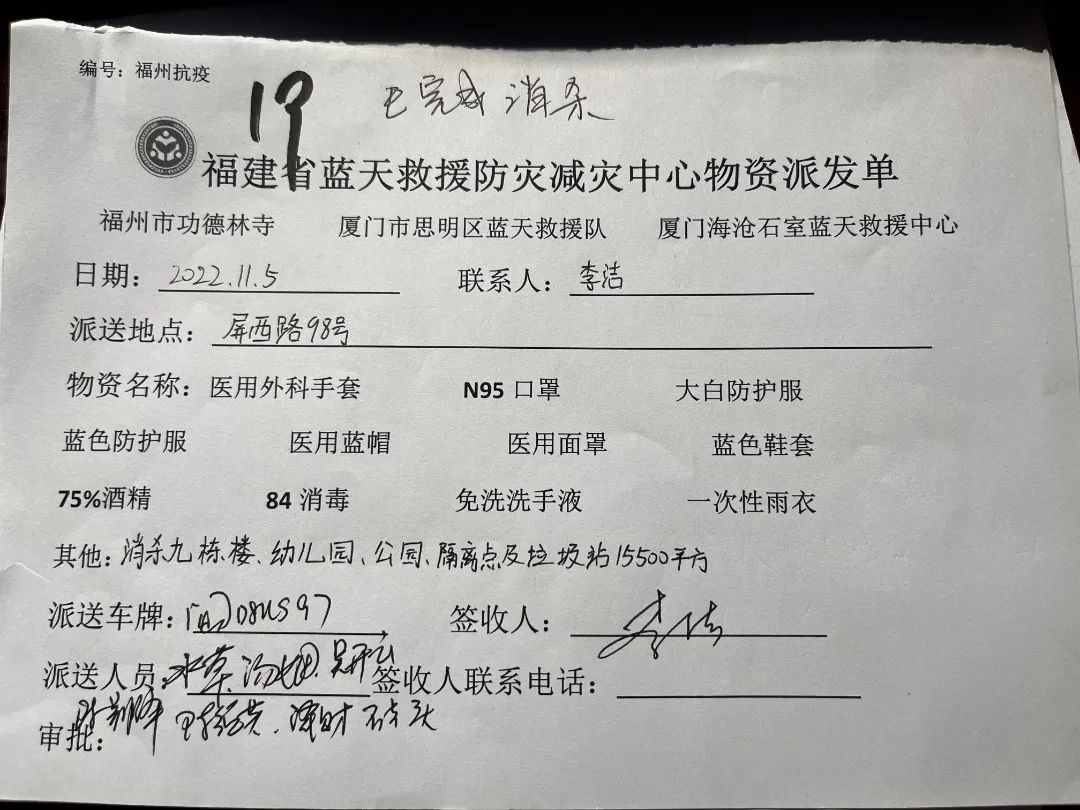 编号：福州抗疫 19 已完成消杀
福建省蓝天救援防灾减灾中心物资派发单
福州市功德林寺 厦门市思明区蓝天救援队 厦门海沧石室蓝天救援中心
日期：2022.11.5 联系人：李洁
派送地点：屏西路98号
物资名称：医用外科手套 N95口罩 大白防护服
蓝色防护服 医用蓝帽 医用面罩 蓝色鞋套
75%酒精 84消毒 免洗洗手液 一次性雨衣
其他：消杀九栋楼、幼儿园、公园、隔离点及垃圾站15500平方
派送车牌：闽D8US97 签收人：李洁
派送人员：水草 签收人联系电话：
审批：